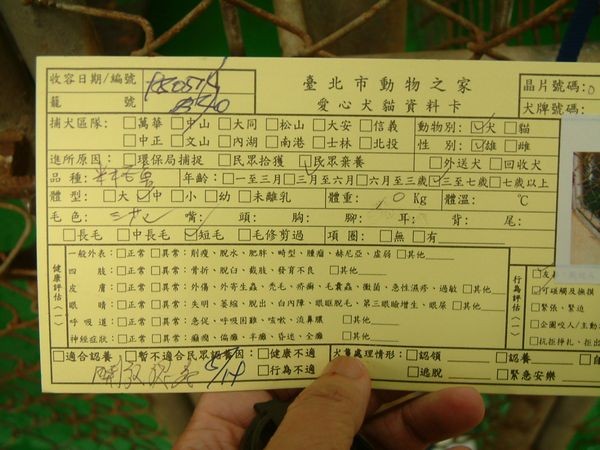 收容日期/編號
臺北市動物之家
晶片號碼:0
籠 號
愛心犬貓資料卡
犬牌號碼:
捕犬區隊: □萬華 ☑中山 □大同 □松山 □大安 □信義 動物別: ☑犬 □貓
□中正 □文山 □內湖 □南港 □士林 □北投 性 別: ☑雄 □雌
進所原因: □環保局捕捉 □民眾拾獲 ☑民眾棄養 □外送犬 □回收犬
品 種: 年齡: □一至三月 □三月至六月 □六月至三歲 ☑三至七歲 □七歲以上
體 型: □大 ☑中 □小 □幼 □未離乳 體重: 10 Kg 體溫: ℃
毛 色: 嘴: 頭: 胸: 腳: 耳: 背: 尾:
□長毛 □中長毛 ☑短毛 □毛修剪過 項 圈: □無 □有
健康評估(一)
一般外表: □正常 □異常: 削瘦、脫水、肥胖、畸型、腫瘤、赫尼亞、虛弱 □其他
四 肢: □正常 □異常: 骨折、脫臼、截肢、發育不良 □其他
皮 膚: □正常 □異常: 外傷、外寄生蟲、禿毛、疥癬、毛囊蟲、黴菌、急性濕疹、過敏 □其他
眼 睛: □正常 □異常: 失明、萎縮、脫出、白內障、眼眶脫毛、第三眼瞼增生、眼屎 □其他
呼 吸 道: □正常 □異常: 急促、呼吸困難、咳嗽、流鼻膿 □其他
神經症狀: □正常 □異常: 癲癇、偏癱、半癱、昏迷、全癱 □其他
行為評估(一)
□可碰觸及撫摸
□緊張、緊迫
□企圖咬人/主動
□抗拒掙扎、拒
□適合認養 □暫不適合民眾認養因: □健康不適
□行為不適
5/14
犬隻處理情形: □認領 □認養 □自
□逃脫 □緊急安樂